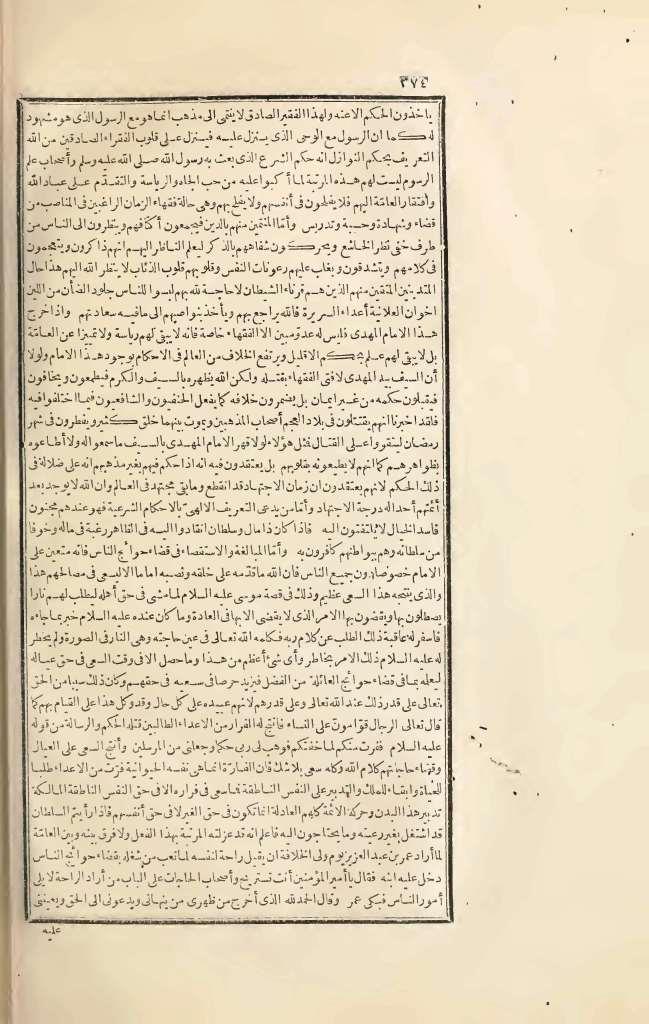 ٣٧٤
يأخذون الحكم الا عنه ولهذا الفقير الصادق لا ينتمى الى مذهب انما هو مع الرسول الذى هو مشهود
له كما ان الرسول مع الوحى الذى ينزل عليه فينزل على قلوب الفقراء الصادقين من الله
التعريف بحكم النوازل انه حكم الشرع الذى بعث به رسول الله صلى الله عليه وسلم وأصحاب علم
الرسوم ليست لهم هذه المرتبة لما أكبوا عليه من حب الجاه والرياسة والتقدّم على عباد الله
وافتقار العامّة اليهم فلا يفلحون فى أنفسهم ولا يفلح بهم وهى حالة فقهاء الزمان الراغبين فى المناصب من
قضاء وشهادة وحسبة وتدريس وأمّا المتنمسين منهم بالدين فيجمعون أكتافهم وينظرون الى الناس من
طرف خفى نظر الخاشع ويحركون شفاههم بالذكر ليعلم الناظر اليهم انهم ذاكرون ويتعجمون
فى كلامهم ويتشدقون ويغلب عليهم رعونات النفس وقلوبهم قلوب الذئاب لا ينظر الله اليهم هذا حال
المتدينين المتقين منهم الذين هم قرناء الشيطان لا حاجة لله بهم لبسوا للناس جلود الضأن من اللين
اخوان العلانية أعداء السريرة فالله يراجع بهم ويأخذ بنواصيهم الى ما فيه سعادتهم واذا خرج
هذا الامام المهدى فليس له عدو مبين الا الفقهاء خاصة فانه لا يبقى لهم رياسة ولا تمييز عن العامّة
بل لا يبقى لهم علم بحكم الا قليل ويرتفع الخلاف من العالم فى الاحكام بوجود هذا الامام ولولا
أن السيف بيد المهدى لافتى الفقهاء بقتله ولكن الله يظهره بالسيف والكرم فيطمعون ويخافون
فيقبلون حكمه من غير ايمان بل يضمرون خلافه كما يفعل الحنفيون والشافعيون فيما اختلفوا فيه
فلقد اخبرنا انهم يقتتلون فى بلاد العجم أصحاب المذهبين ويموت بينهما خلق كثير ويفطرون فى شهر
رمضان ليتقووا على القتال فمثل هؤلاء لولا قهر الامام المهدى بالسيف ما سمعوا له ولا أطاعوه
بظواهرهم كما انهم لا يطيعونه بقلوبهم بل يعتقدون فيه انه اذا حكم فيهم بغير مذهبهم انه على ضلالة فى
ذلك الحكم لانهم يعتقدون ان زمان الاجتهاد قد انقطع وما بقى مجتهد فى العالم وان الله لا يوجد بعد
أئمتهم أحدا له درجة الاجتهاد وأمّا من يدعى التعريف الالهىّ بالاحكام الشرعية فهو عندهم مجنون
فاسد الخيال لا يلتفتون اليه فاذا كان ذا مال وسلطان انقادوا اليه فى الظاهر رغبة فى ماله وخوفا
من سلطانه وهم ببواطنهم كافرون به وأمّا المبالغة والاستقصاء فى قضاء حوائج الناس فانه متعين على
الامام خصوصا دون جميع الناس فان الله ما قدّمه على خلقه ونصبه اماما الا ليسعى فى مصالحهم هذا
والذى ينتجه هذا السعى عظيم وذلك فى قصة موسى عليه السلام لما مشى فى حق أهله ليطلب لهم نارا
يصطلون بها ويقضون بها الامر الذى لا يقضى الا بها فى العادة وما كان عنده عليه السلام خبر بما جاءه
فاسفر له عاقبة ذلك الطلب عن كلام ربه فكلمه الله تعالى فى عين حاجته وهى النار فى الصورة ولم يخطر
له عليه السلام ذلك الامر بخاطر وأى شئ أعظم من هذا وما حصل الا فى وقت السعى فى حق عياله
ليعلم بما فى قضاء حوائج العائلة من الفضل فيزيد حرصا فى سعيه فى حقهم وكان ذلك سببا من الحق
تعالى على قدر ذلك عند الله تعالى وعلى قدرهم لانهم عبيده على كل حال وقد وكل هذا على القيام بهم كما
قال تعالى الرجال قوّامون على النساء فانتج له الفرار من الاعداء الطالبين قتله الحكم والرسالة من قوله
عليه السلام ففررت منكم لما خفتكم فوهب لى ربى حكما وجعلنى من المرسلين وأنتج السعى على العيال
وقضاء حاجاتهم كلام الله وكله سعى بلا شك فان الفار انما هى نفسه الحيوانية فرّت من الاعداء طلبا
للحياة وابقاء للملك والتدبير على النفس الناطقة فما سعى فى فراره الا فى حق النفس الناطقة المالكة
تدبير هذا البدن وحركة الائمة كلهم العادلة انما تكون فى حق الغير لا فى حق أنفسهم فاذا رأيتم السلطان
قد اشتغل بغير رعيته وما يحتاجون اليه فاعلم انه قد عزلته المرتبة بهذا الفعل ولا فرق بينه وبين العامّة
لما أراد عمر بن عبد العزيز يوم ولى الخلافة ان يقيل راحة لنفسه لما تعب من شغله بقضاء حوائج الناس
دخل عليه ابنه فقال يا أمير المؤمنين أنت تستريح وأصحاب الحاجات على الباب من أراد الراحة لا يلى
أمور الناس فبكى عمر وقال الحمد لله الذى أخرج من ظهرى من ينهانى ويدعونى الى الحق ويعيننى
عليه